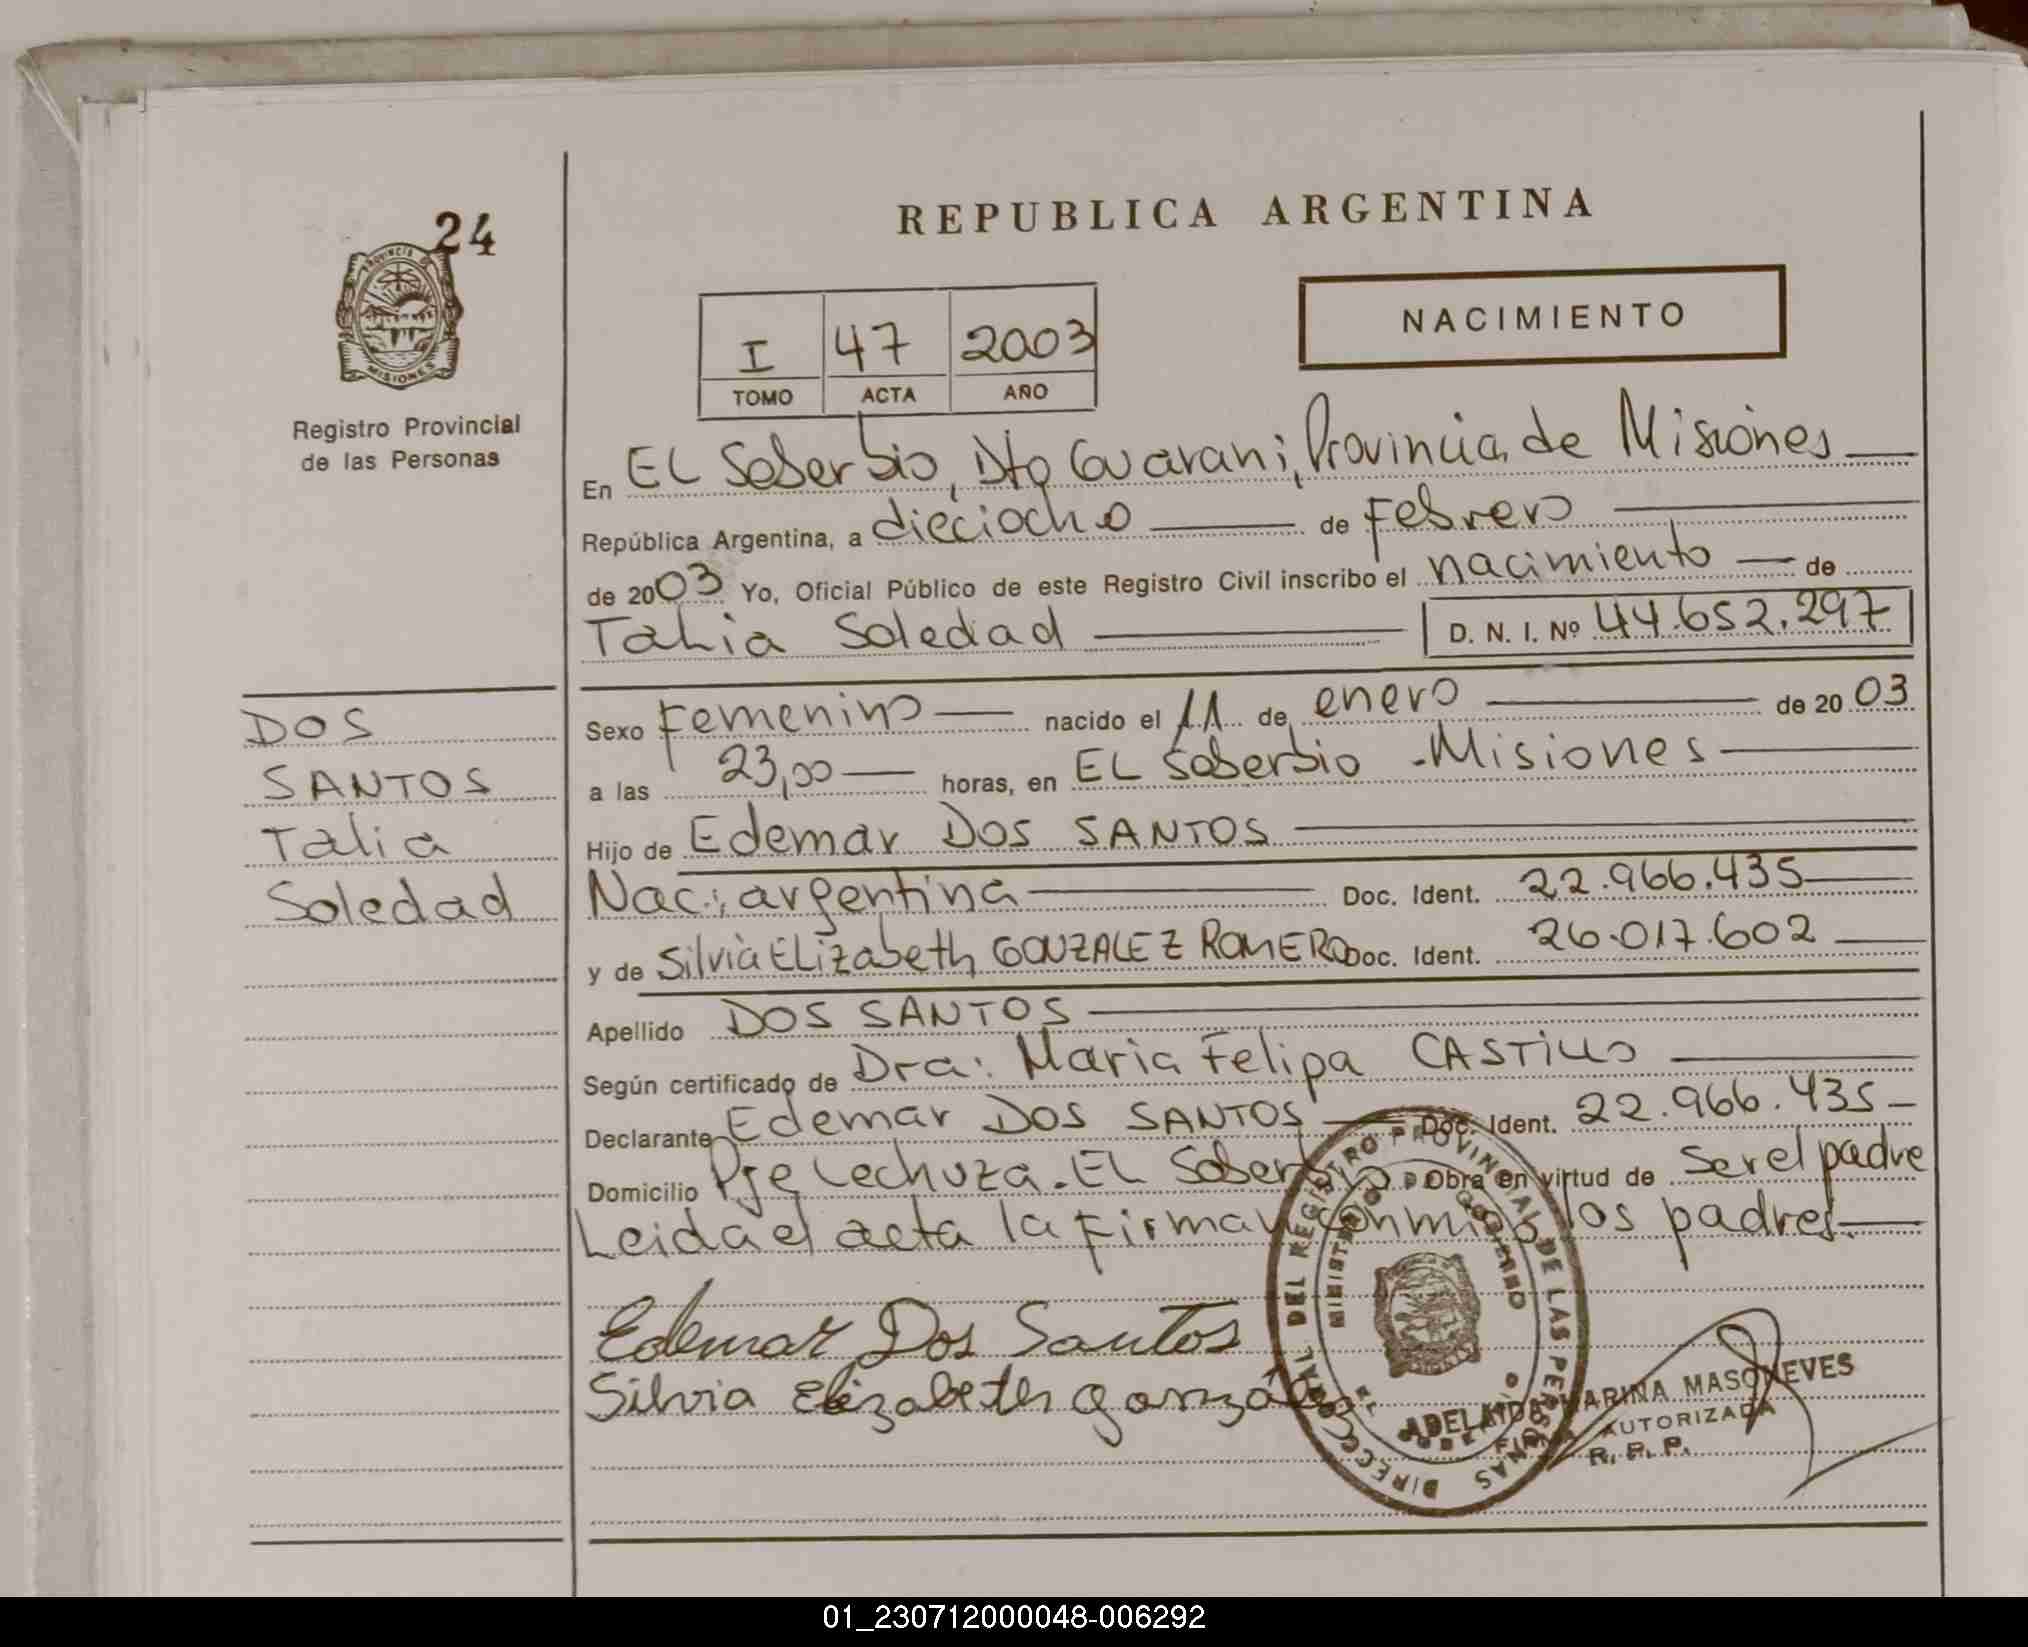 24
PROVINCIA D
MISIONES
Registro Provincial
de las Personas
DOS
SANTOS
Talia
Soledad
REPUBLICA ARGENTINA
I 47 2003
TOMO ACTA AÑO
NACIMIENTO
En EL Soberbio, Dto Guarani, Provincia de Misiones
República Argentina, a dieciocho de Febrero
de 2003 Yo, Oficial Público de este Registro Civil inscribo el nacimiento de
Talia Soledad D. N. I. Nº 44.652.297
Sexo Femenino nacido el 11 de enero de 2003
a las 23,00 horas, en EL Soberbio - Misiones
Hijo de Edemar DOS SANTOS
Nac: argentina Doc. Ident. 22.966.435
y de Silvia Elizabeth GONZALEZ ROMERO Doc. Ident. 26.017.602
Apellido DOS SANTOS
Según certificado de Dra: Maria Felipa CASTILLO
Declarante Edemar DOS SANTOS Doc. Ident. 22.966.435
Domicilio Pje Lechuza - EL Soberbio Obra en virtud de ser el padre
Leida el acta la firman conmigo los padres.
Edemar Dos Santos
Silvia Elizabeth González
DIRECC GRAL DEL REGISTRO PROVINCIAL DE LAS PERSONAS
MINISTERIO DE GOBIERNO
ADELAIDA MARINA MASONEVES
FIRMA AUTORIZADA
R. P. P.
01_230712000048-006292